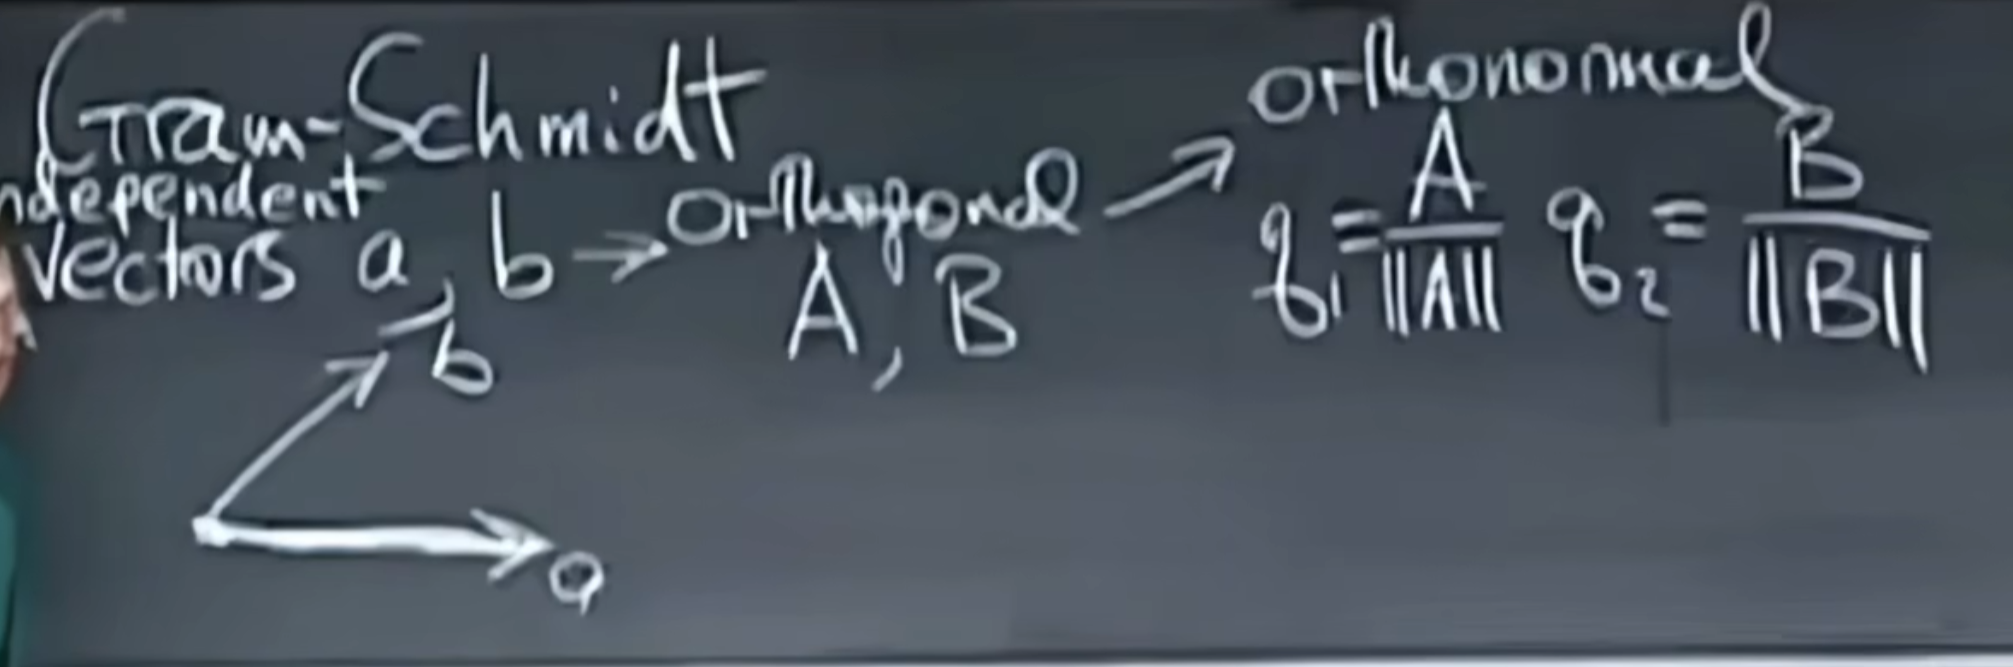 Gram-Schmidt
ndependent
vectors a, b → orthogonal
A, B
→ orthonormal
q₁ = A/||A|| q₂ = B/||B||
b
a